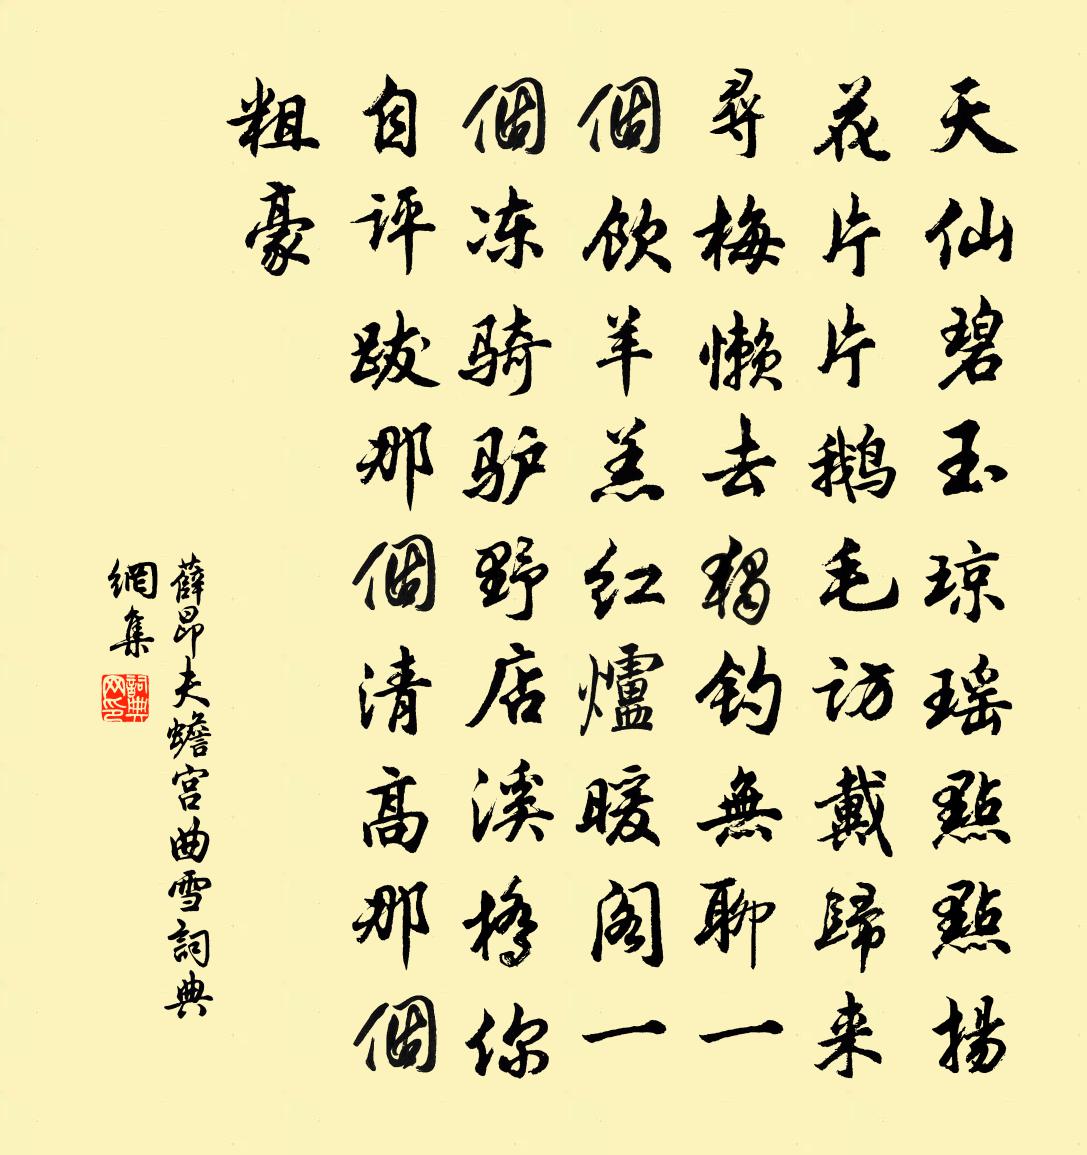 天仙碧玉琼瑶點點揚
花片片鹅毛访戴歸来
尋梅懒去獨钓無聊一
個飲羊羔红爐暖阁一
個冻骑驴野店溪橋你
自评跋那個清高那個
粗豪
薛昂夫蟾宫曲雪詞典
網集
詞典
网印